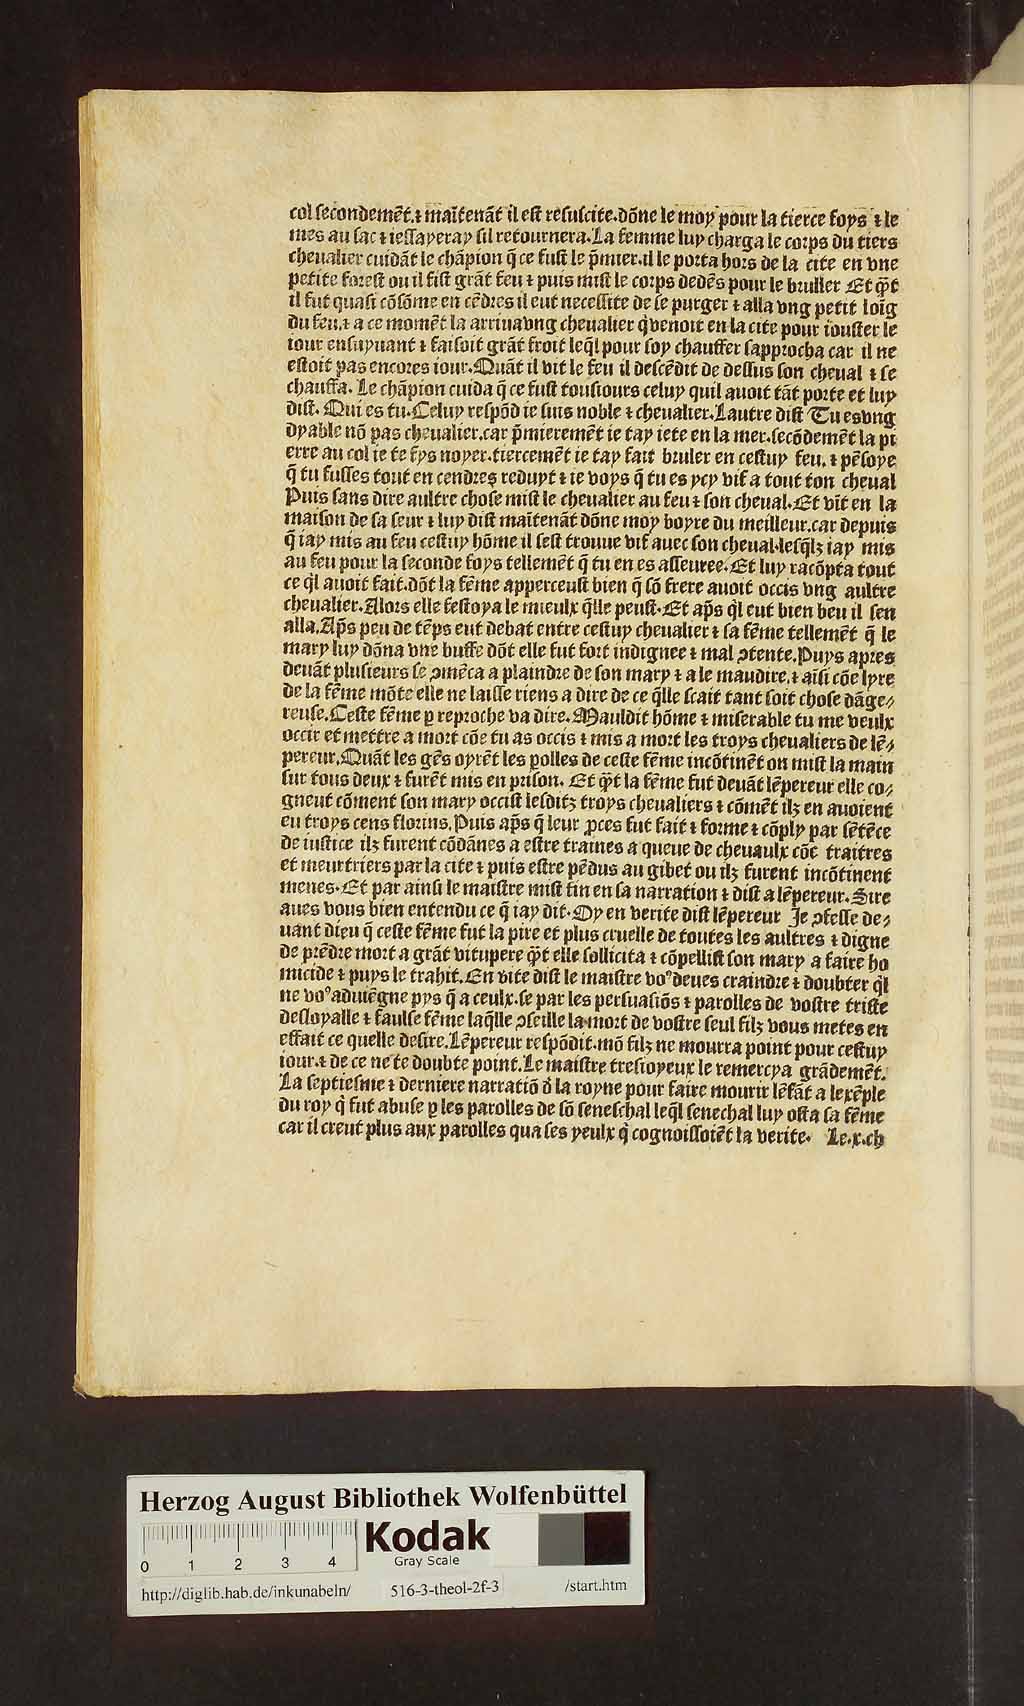 col secondemēt.⁊ maītenāt il est resuscite.dōne le moy pour la tierce foys ⁊ le
mes au sac ⁊ iessayeray sil retournera.La femme luy charga le corps du tiers
cheualier cuidāt le chāpion q̄ ce fust le p̄mier.il le porta hors de la cite en vne
petite forest ou il fist grāt feu ⁊ puis mist le corps dedēs pour le bruller Et qͣt
il fut quasi cōsōme en cēdres il eut necessite de se purger ⁊ alla vng petit loīg
du feu.⁊ a ce momēt la arriuavng cheualier q̇ venoit en la cite pour iouster le
iour ensuyuant ⁊ faisoit grāt froit leq̄l pour soy chauffer sapprocha car il ne
estoit pas encores iour.Quāt il vit le feu il descēdit de dessus son cheual ⁊ se
chauffa. Le chāpion cuida q̄ ce fust tousiours celuy quil auoit tāt porte et luy
dist. Qui es tu.Celuy respōd ie suis noble ⁊ cheualier.Lautre dist Tu esvng
dyable nō pas cheualier.car p̄mieremēt ie tay iete en la mer.secōdemēt la pi
erre au col ie te fys noyer.tiercemēt ie tay fait bruler en cestuy feu.⁊ pēsoye
q̄ tu fusses tout en cendres reduyt ⁊ ie voys q̄ tu es ycy vif a tout ton cheual
Puis sans dire aultre chose mist le cheualier au feu ⁊ son cheual.Et vīt en la
maison de sa seur ⁊ luy dist maītenāt dōne moy boyre du meilleur.car depuis
q̄ iay mis au feu cestuy hōme il sest trouue vif auec son cheual.lesq̄lz iay mis
au feu pour la seconde foys tellemēt q̄ tu en es asseuree.Et luy racōpta tout
ce ql̄ auoit fait.dōt la fēme apperceust bien q̄ sō frere auoit occis vng aultre
cheualier.Alors elle festoya le mieulx q̄lle peust.Et ap̄s ql̄ eut bien beu il sen
alla.Ap̄s peu de tēps eut debat entre cestuy cheualier ⁊ sa fēme tellemēt q̄ le
mary luy dōna vne buffe dōt elle fut fort indignee ⁊ mal ꝯtente.Puys apres
deuāt plusieurs se ꝯmēca a plaindre de son mary ⁊ a le maudire.⁊ aīsi cōe lyre
de la fēme mōte elle ne laisse riens a dire de ce q̄lle scait tant soit chose dāge⸗
reuse.Ceste fēme p̱ reproche va dire.Mauldit hōme ⁊ miserable tu me veulx
occir et mettre a mort cōe tu as occis ⁊ mis a mort les troys cheualiers de lē⸗
pereur.Quāt les gēs oyrēt les ꝑolles de ceste fēme incōtinēt on mist la main
sur tous deux ⁊ furēt mis en prison. Et qͣt la fēme fut deuāt lēpereur elle co⸗
gneut cōment son mary occist lesditz troys cheualiers ⁊ cōmēt ilz en auoient
eu troys cens florins.Puis ap̄s q̄ leur ꝓces fut fait ⁊ forme ⁊ cōply par sētēce
de iustice ilz furent cōdānes a estre traines a queue de cheuaulx cōe traitres
et meurtriers par la cite ⁊ puis estre pēdus au gibet ou ilz furent incōtinent
menes.Et par ainsi le maistre mist fin en sa narration ⁊ dist a lēpereur.Sire
aues vous bien entendu ce q̄ iay dit.Oy en verite dist lēpereur Je ꝯfesse de⸗
uant dieu q̄ ceste fēme fut la pire et plus cruelle de toutes les aultres ⁊ digne
de prēdre mort a grāt vitupere qͣt elle sollicita ⁊ cōpellist son mary a faire ho
micide ⁊ puys le trahit.En vite dist le maistre voꝰdeues craindre ⁊ doubter ql̄
ne voꝰaduiēgne pys q̄ a ceulx.se par les persuasiōs ⁊ parolles de vostre triste
desloyalle ⁊ faulse fēme laq̄lle ꝯseille la mort de vostre seul filz vous metes en
effait ce quelle desire.Lēpereur respōdit.mō filz ne mourra point pour cestuy
iour.⁊ de ce ne te doubte point.Le maistre tresioyeux le remercya grādemēt.
La septiesme ⁊ derniere narratiō d̄ la royne pour faire mourir lēfāt a lexēple
du roy q̇ fut abuse ꝑ les parolles de sō seneschal leq̄l senechal luy osta sa fēme
car il creut plus aux parolles qua ses yeulx q̇ cognoissoiēt la verite. Le.x.ch
Herzog August Bibliothek Wolfenbüttel
0 1 2 3 4
Kodak
Gray Scale
http://diglib.hab.de/inkunabeln/ 516-3-theol-2f-3 /start.htm